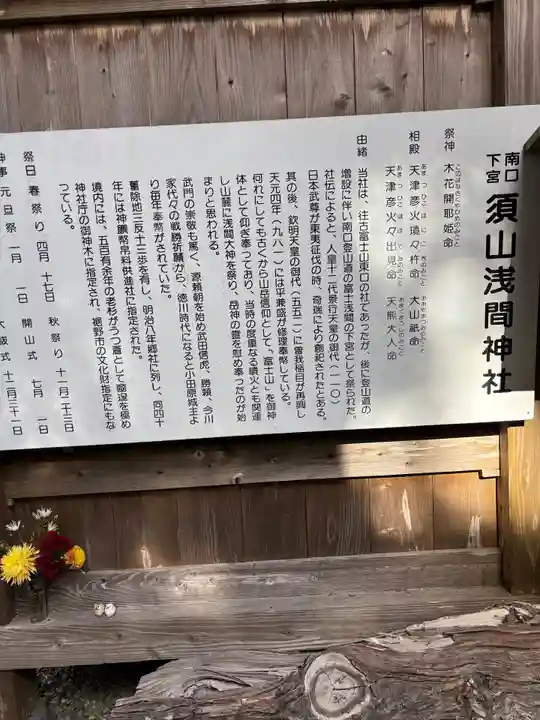 南口
下宮
須山浅間神社
祭神 木花開耶姫命
このはなさくやひめのみこと
相殿 天津彦火瓊々杵命 大山祇命
天津彦火々出見命 天熊大人命
由緒 当社は、往古富士山東口の社であったが、後に登山道の
増設に伴い南口登山道の富士浅間の下宮として祭られた。
社伝によると、人皇十二代景行天皇の御代(一一〇)
日本武尊が東夷征伐の時、奇瑞により創祀されたとある。
其の後、欽明天皇の御代(五五二)に曽我稲目が再興し
天元四年(九八一)には平兼盛が修理奉幣している。
何れにしても古くから山岳信仰として、「富士山」を御神
体として仰ぎ奉っており、当時の度重なる噴火とも関連
し山麓に浅間大神を祭り、岳神の霊を慰め奉ったのが始
まりと思われる。
武門の崇敬も篤く、源頼朝を始め武田信虎、勝頼、今川
家代々の戦勝祈願から、徳川時代になると小田原城主よ
り毎年奉幣がされていた。
除地三反十二歩を有し、明治八年郷社に列し、同四十
年には神饌幣帛料供進社に指定された。
境内には、五百有余年の老杉がうつ蒼として幽邃を極め
神社庁の御神木に指定され、裾野市の文化財指定にもな
っている。
祭日 春祭り 四月 十七日 秋祭り 十一月二十三日
神事 元旦祭 一月 一日 開山式 七月 一日
大祓式 十二月三十一日